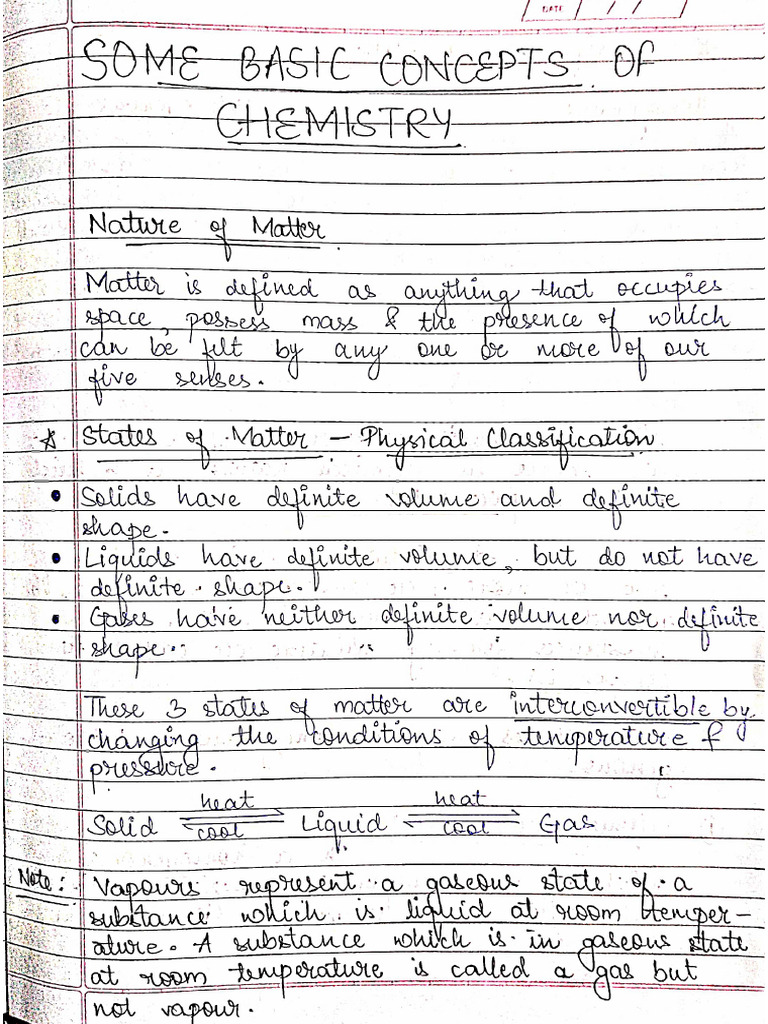 DATE / /
SOME BASIC CONCEPTS OF
CHEMISTRY
Nature of Matter
Matter is defined as anything that occupies
space, possess mass & the presence of which
can be felt by any one or more of our
five senses.
☆ States of Matter – Physical Classification
• Solids have definite volume and definite
shape.
• Liquids have definite volume, but do not have
definite shape.
• Gases have neither definite volume nor definite
shape.
These 3 states of matter are interconvertible by
changing the conditions of temperature &
pressure.
heat heat
Solid ⇌ Liquid ⇌ Gas
cool cool
Note: Vapours represent a gaseous state of a
substance which is liquid at room temper-
ature. A substance which is in gaseous state
at room temperature is called a gas but
not vapour.